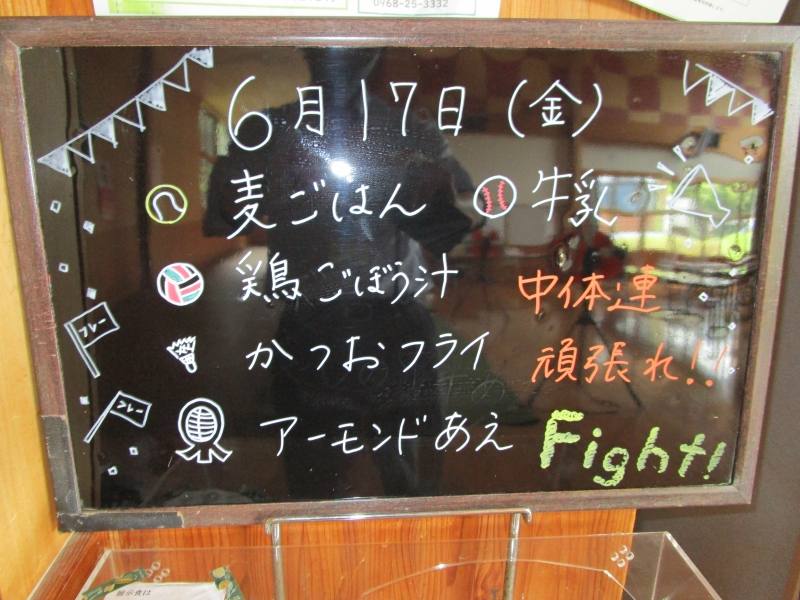 0968-25-3332
6月17日(金)
麦ごはん
牛乳
鶏ごぼう汁
中体連
かつおフライ
頑張れ!!
アーモンドあえ
Fight!
フレー
フレー
展示食は